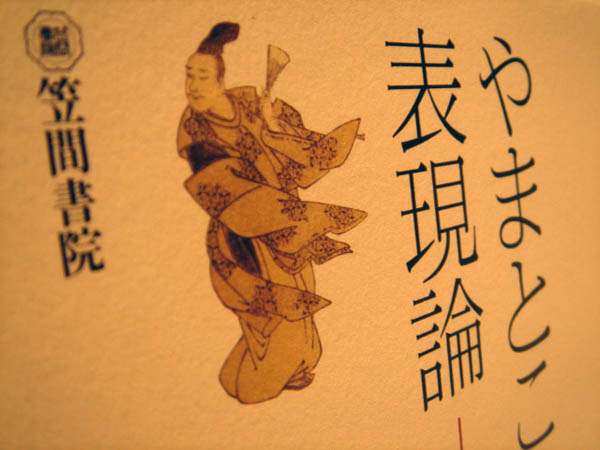 やまとこ
表現論
笠間書院